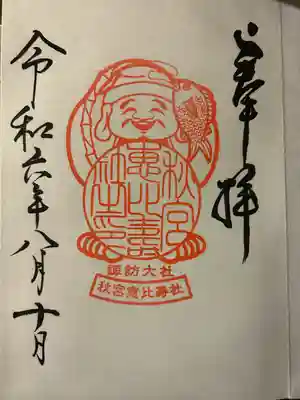 奉拝
秋宮
恵比寿
社之印
諏訪大社
秋宮恵比壽社
令和六年八月十日